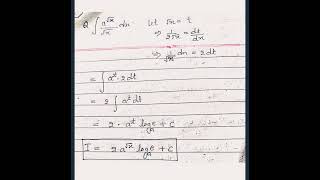 Q ∫ a^√x / √x dx    Let √x = t
⇒ 1/2√x = dt/dx
⇒ 1/√x dx = 2dt
= ∫ a^t · 2dt
= 2 ∫ a^t dt
= 2 · a^t log_a e + c
I = 2 a^√x log_a e + c